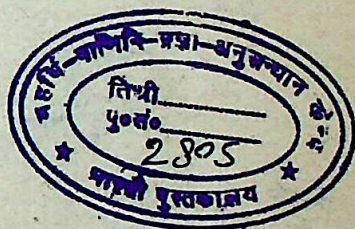 महर्षि-पाणिनि-प्रज्ञा-अनुसन्धान
तिथी
पु०सं०
2805
पुस्तकालय